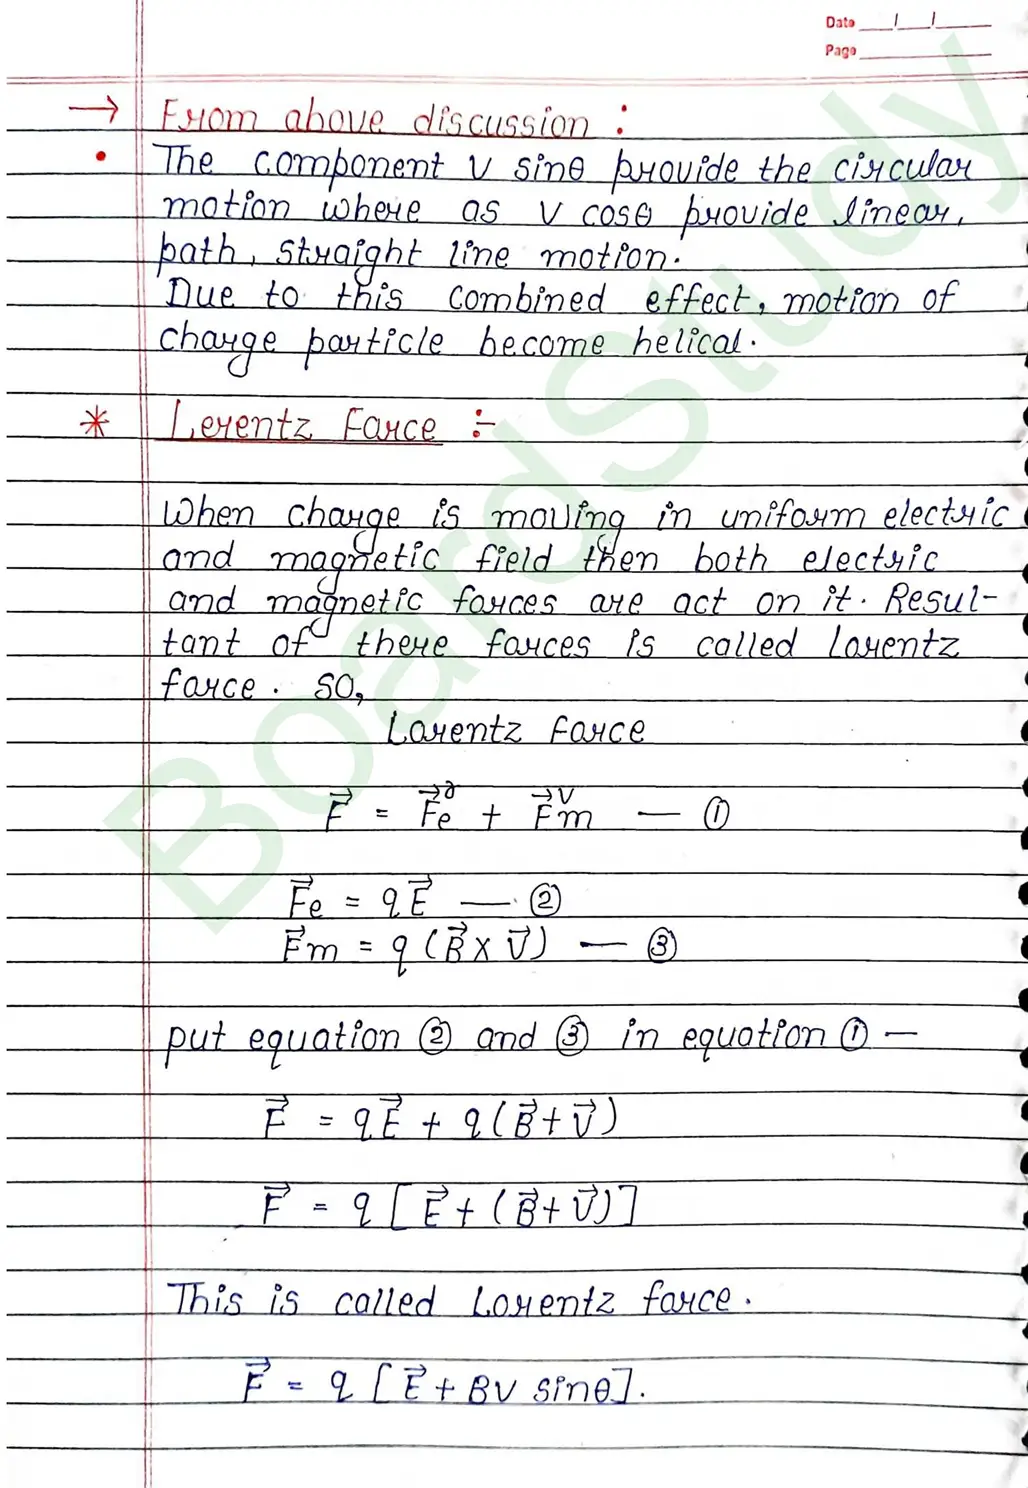 Date __/__/____
Page ________
→ From above discussion :
• The component v sinθ provide the circular
motion where as v cosθ provide linear,
path, straight line motion.
Due to this combined effect, motion of
charge particle become helical.
* Lerentz Farce :-
When charge is moving in uniform electric
and magnetic field then both electric
and magnetic forces are act on it. Resul-
tant of there farces is called Lorentz
farce. SO,
Larentz Farce
F⃗ = F⃗e + F⃗m — ①
F⃗e = qE⃗ — ②
F⃗m = q (B⃗ × V⃗) — ③
put equation ② and ③ in equation ① —
F⃗ = qE⃗ + q (B⃗ + V⃗)
F⃗ = q [E⃗ + (B⃗ + V⃗)]
This is called Lorentz farce.
F⃗ = q [E⃗ + BV sinθ].
BoardStudy